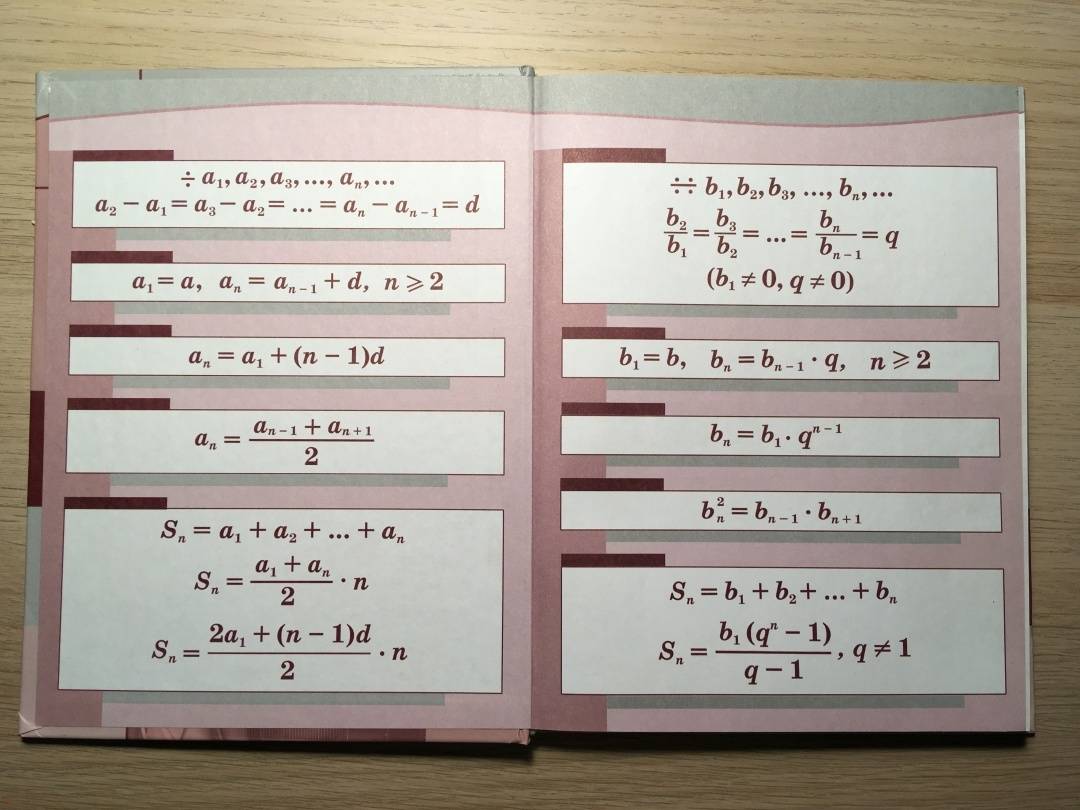 ÷ a₁, a₂, a₃, ..., aₙ, ...
a₂ − a₁ = a₃ − a₂ = ... = aₙ − aₙ₋₁ = d
a₁ = a, aₙ = aₙ₋₁ + d, n ⩾ 2
aₙ = a₁ + (n − 1)d
aₙ = (aₙ₋₁ + aₙ₊₁)/2
Sₙ = a₁ + a₂ + ... + aₙ
Sₙ = (a₁ + aₙ)/2 · n
Sₙ = (2a₁ + (n − 1)d)/2 · n
÷÷ b₁, b₂, b₃, ..., bₙ, ...
b₂/b₁ = b₃/b₂ = ... = bₙ/bₙ₋₁ = q
(b₁ ≠ 0, q ≠ 0)
b₁ = b, bₙ = bₙ₋₁ · q, n ⩾ 2
bₙ = b₁ · qⁿ⁻¹
bₙ² = bₙ₋₁ · bₙ₊₁
Sₙ = b₁ + b₂ + ... + bₙ
Sₙ = b₁(qⁿ − 1)/(q − 1), q ≠ 1